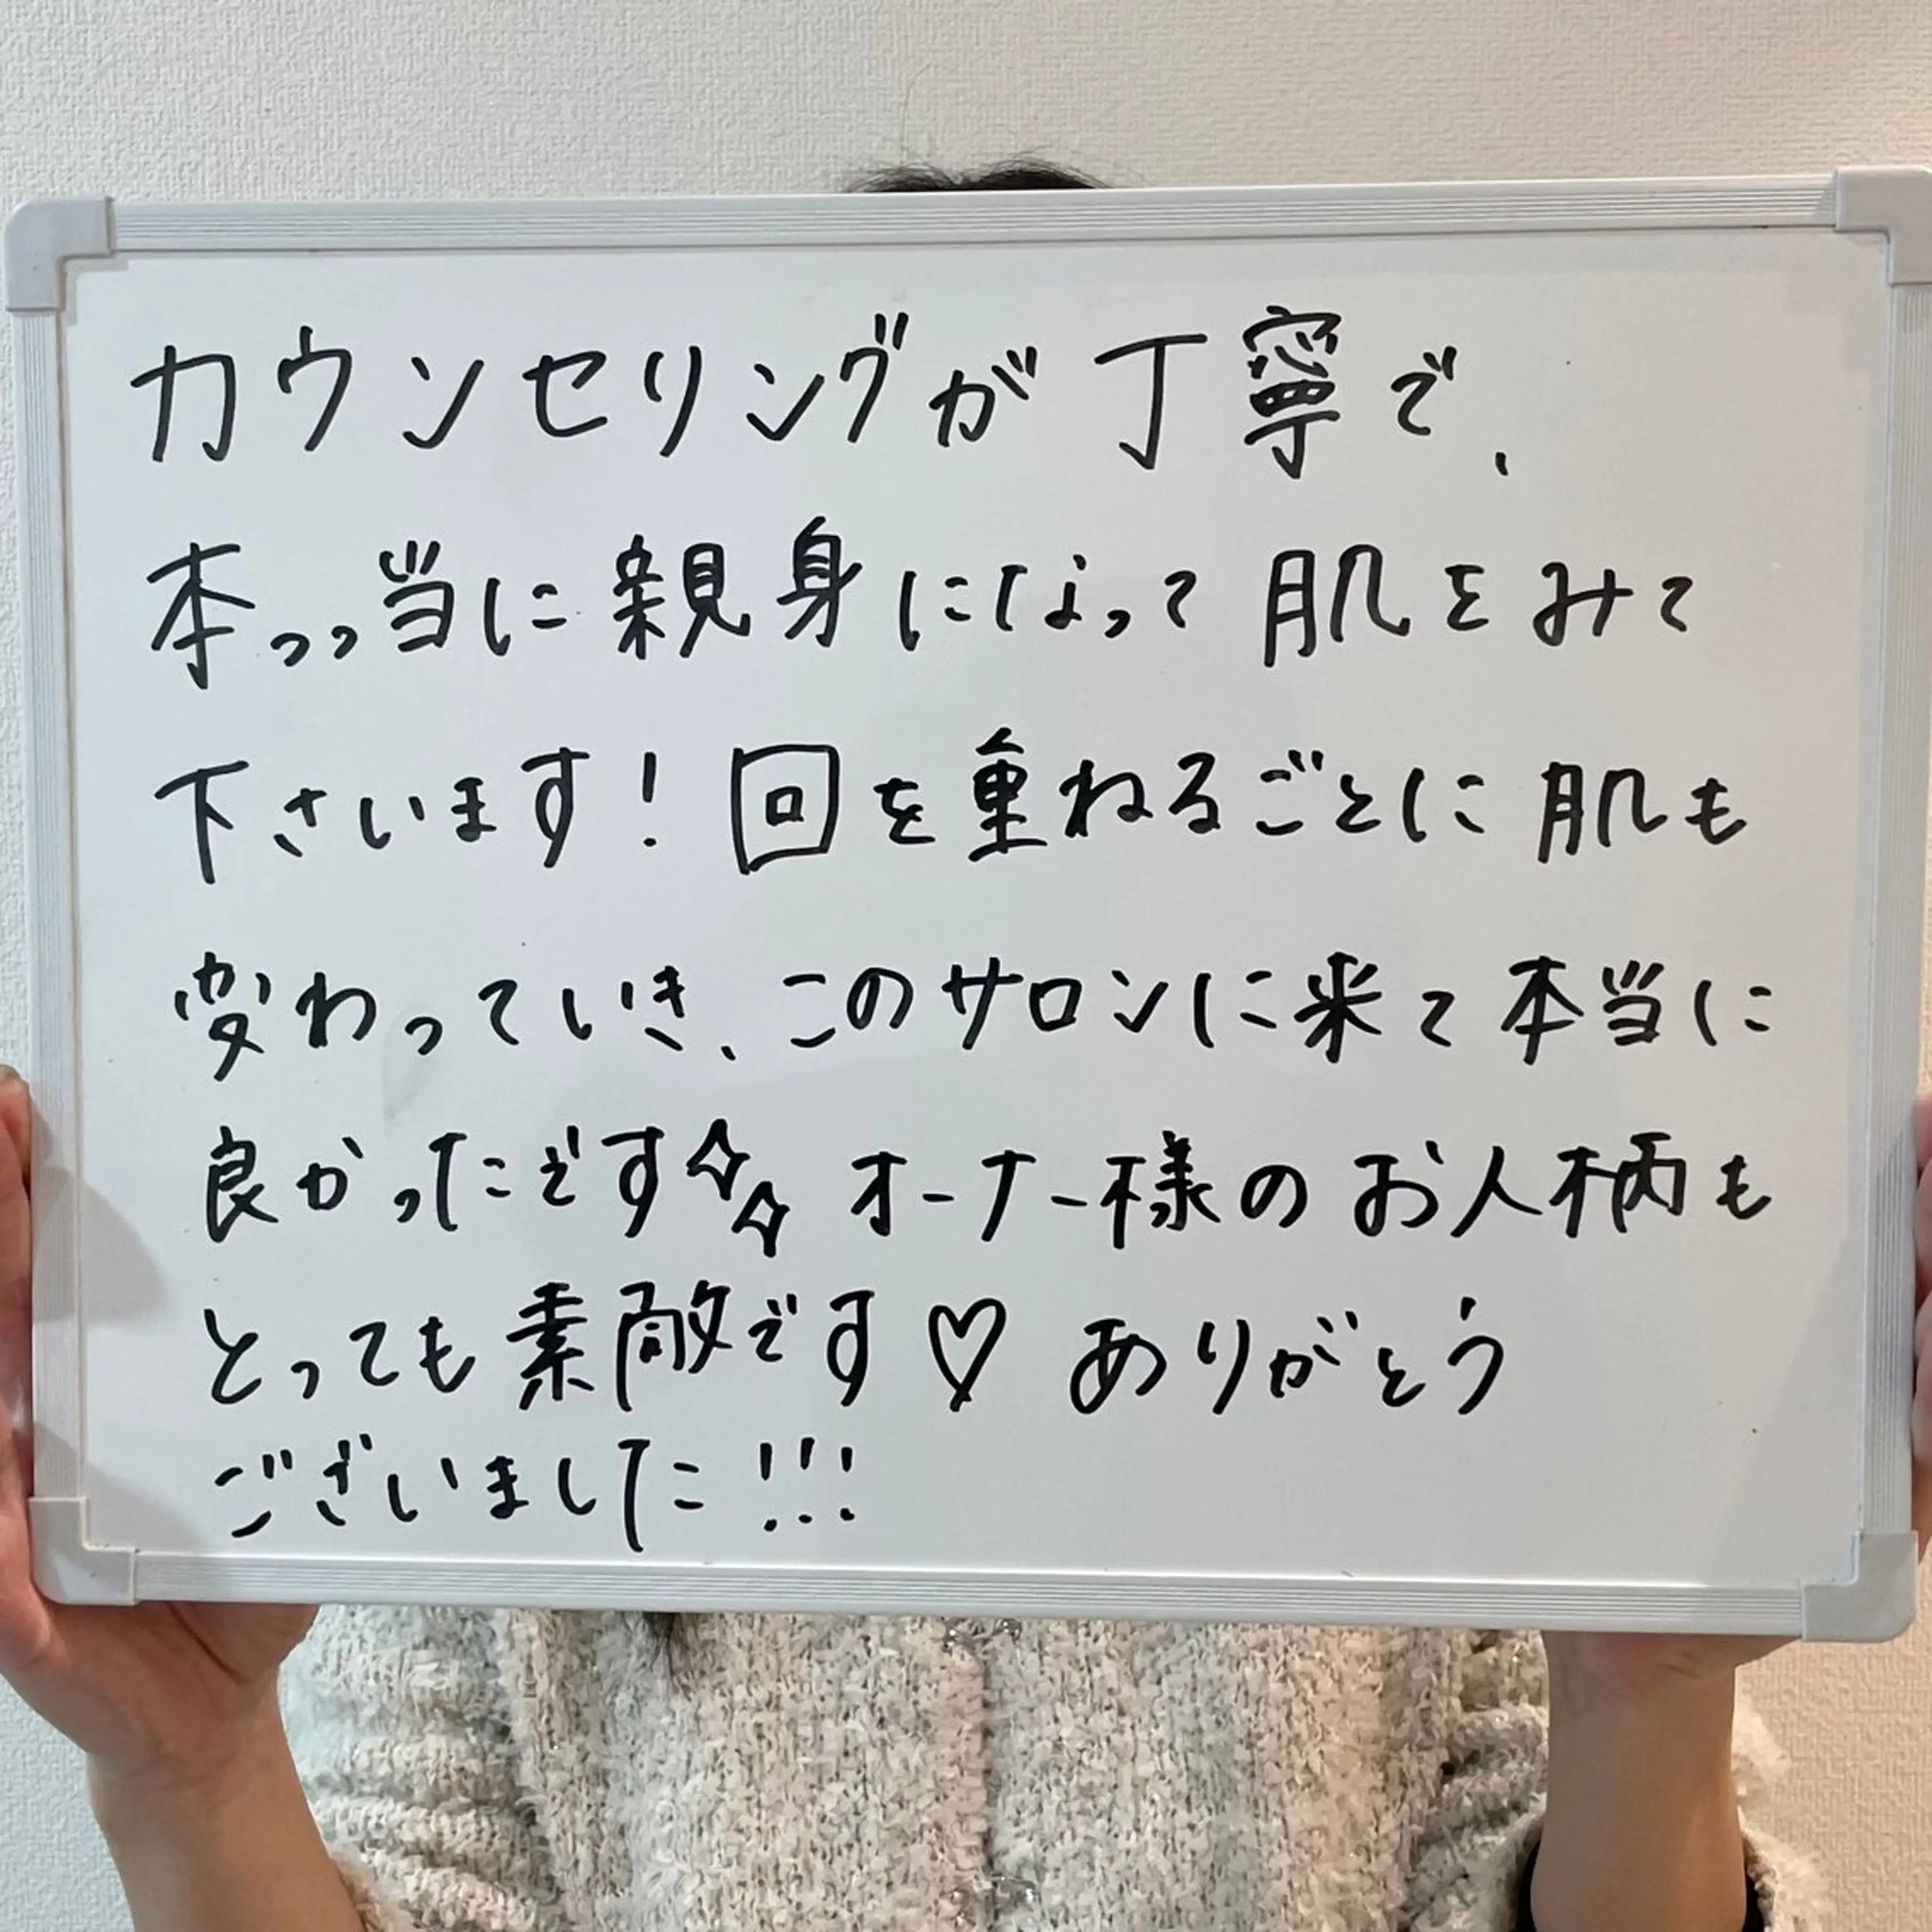 カウンセリングが丁寧で、
本っっ当に親身になって肌をみて
下さいます！回を重ねるごとに肌も
変わっていき、このサロンに来て本当に
良かったです✧✧オーナー様のお人柄も
とっても素敵です♡ありがとう
ございました!!!